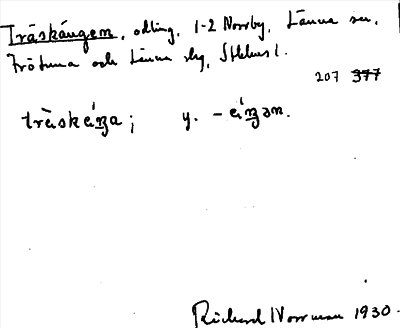 Träskängen, odling, 1-2 Norrby, Länna sn,
Frötuna och Länna skg, Sthlms l.
207 377
träskeŋa; y. -eŋən.
Richard Norrman 1930.